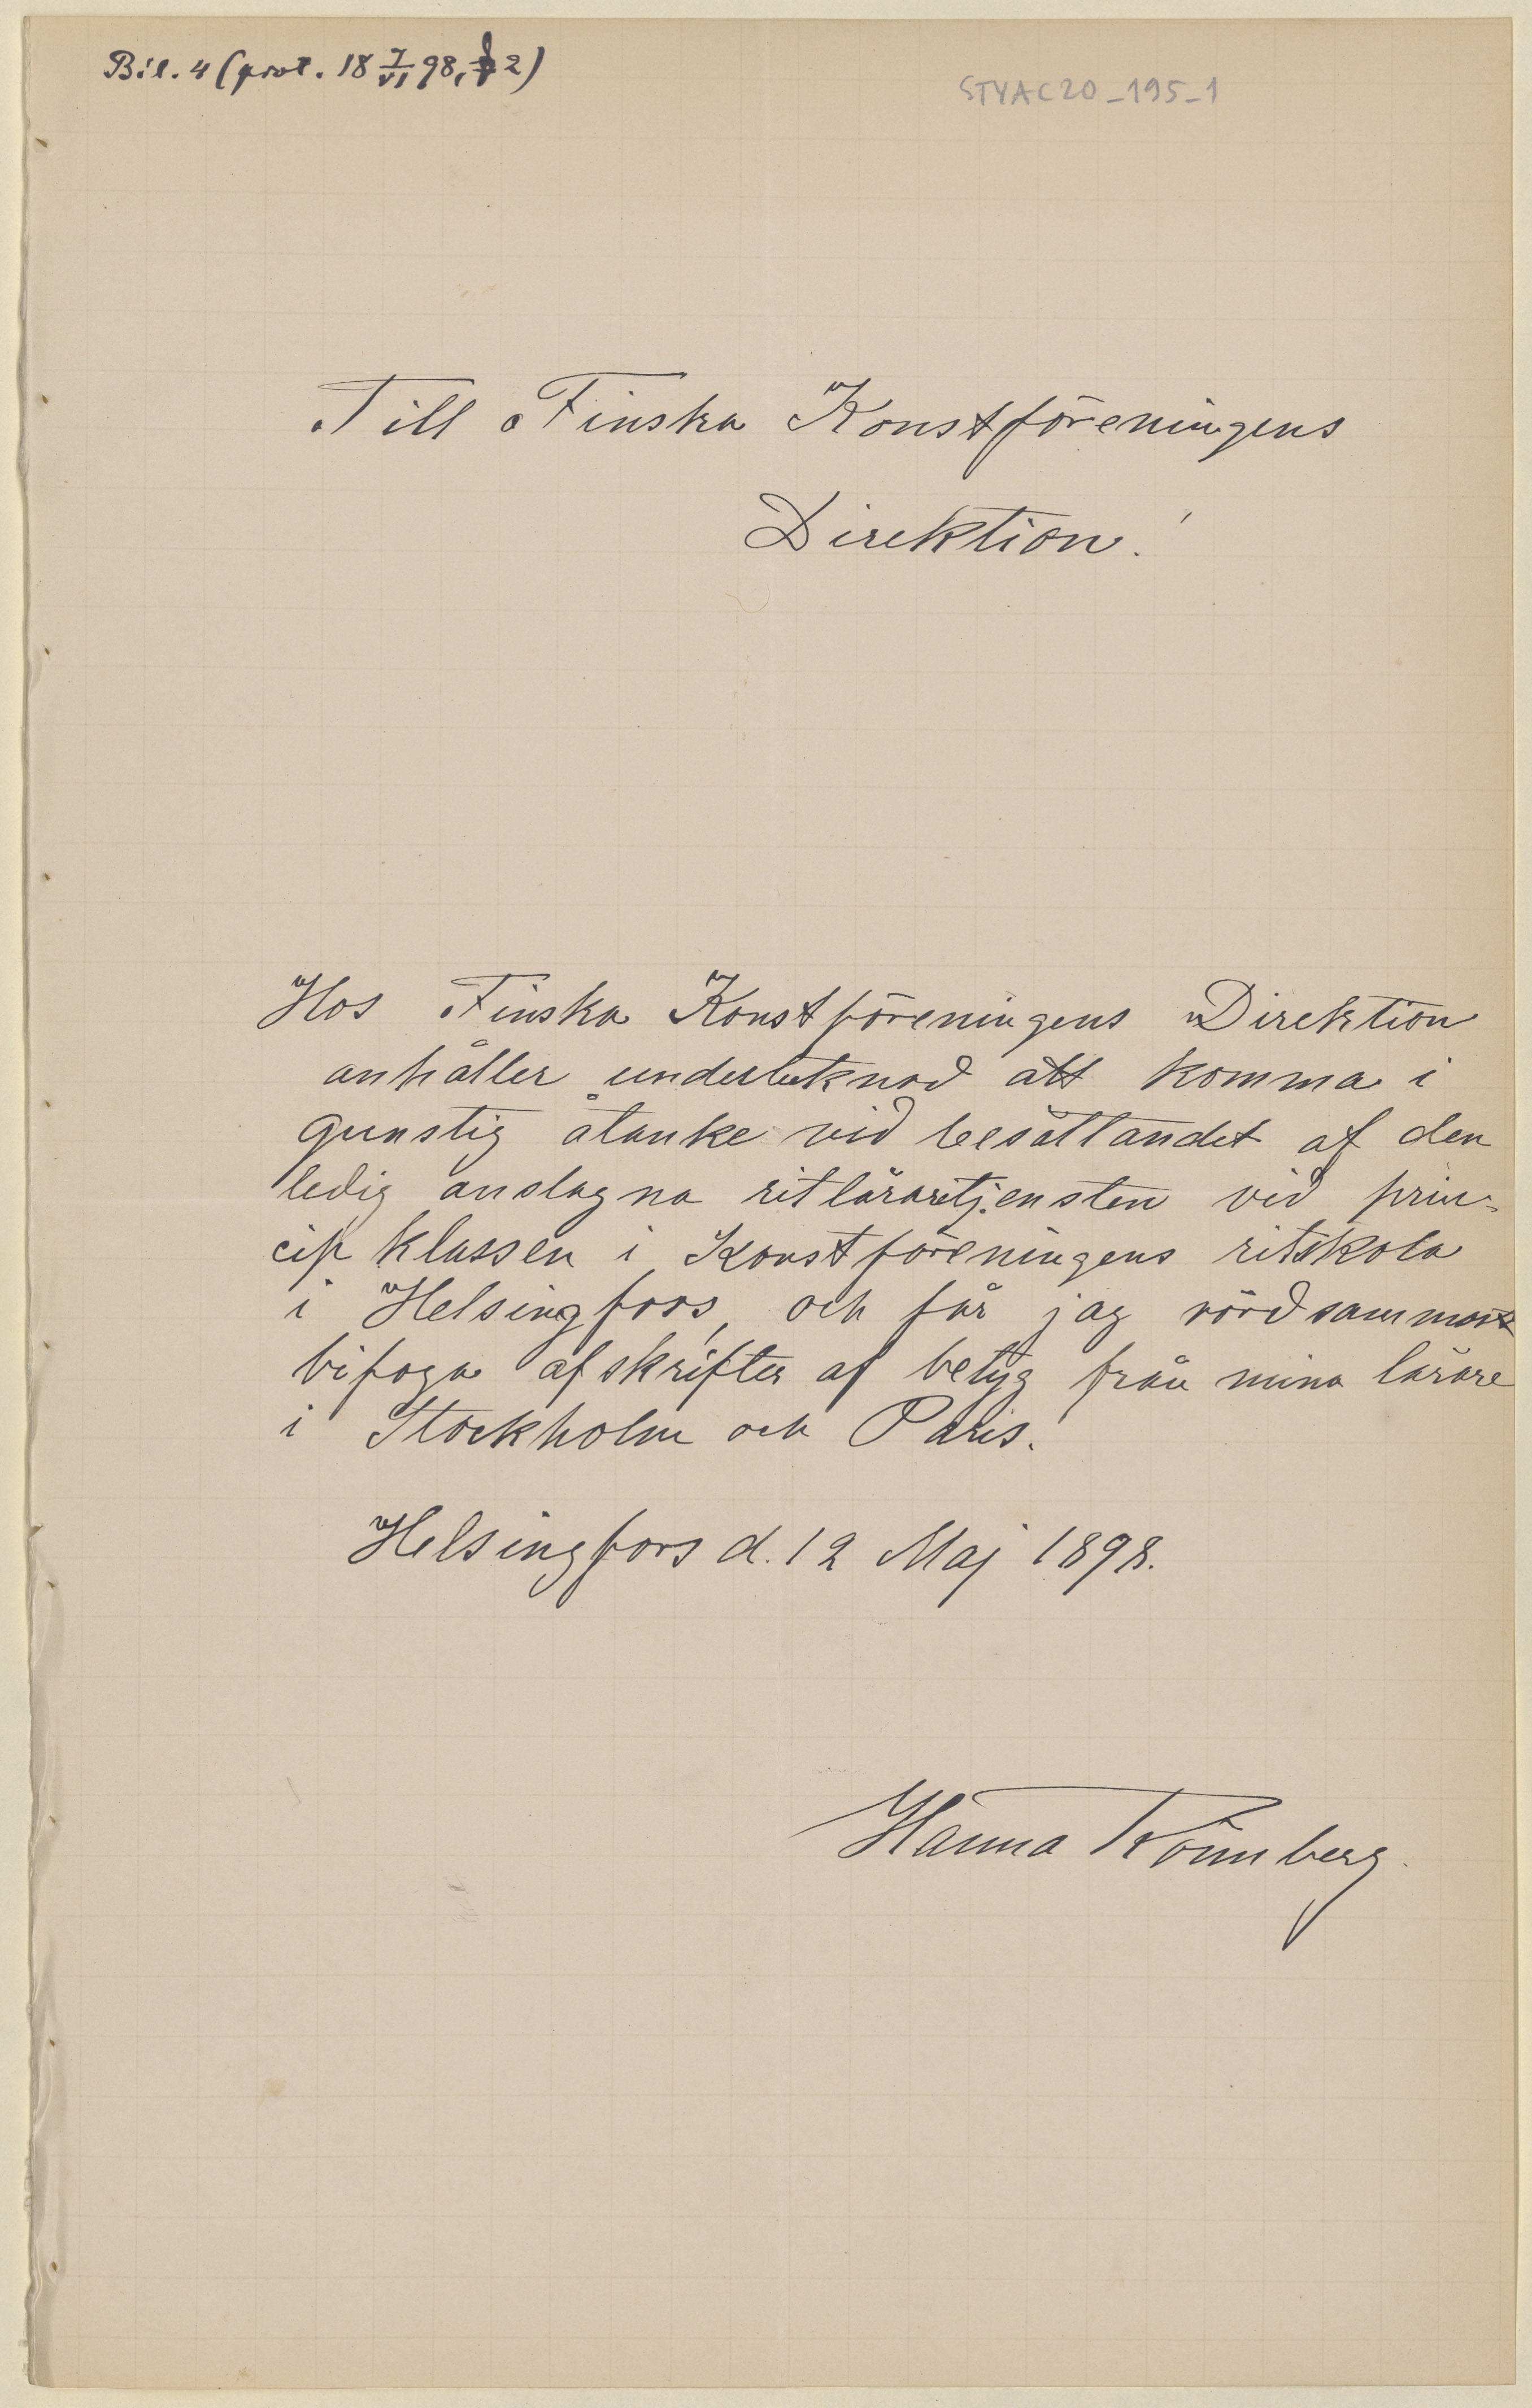 Bil. 4 (prot. 18 7/VI 98, § 2)
STYAC20_195_1
Till Finska Konstföreningens
Direktion!
Hos Finska Konstföreningens Direktion
anhåller undertecknad att komma i
gunstig åtanke vid besättandet af den
ledig anslagna ritlärartjensten vid prin-
cip klassen i Konstföreningens ritskola
i Helsingfors, och får jag vördsammast
bifoga afskrifter af betyg från mina lärare
i Stockholm och Paris.
Helsingfors d. 12 Maj 1898.
Hanna Rönnberg.